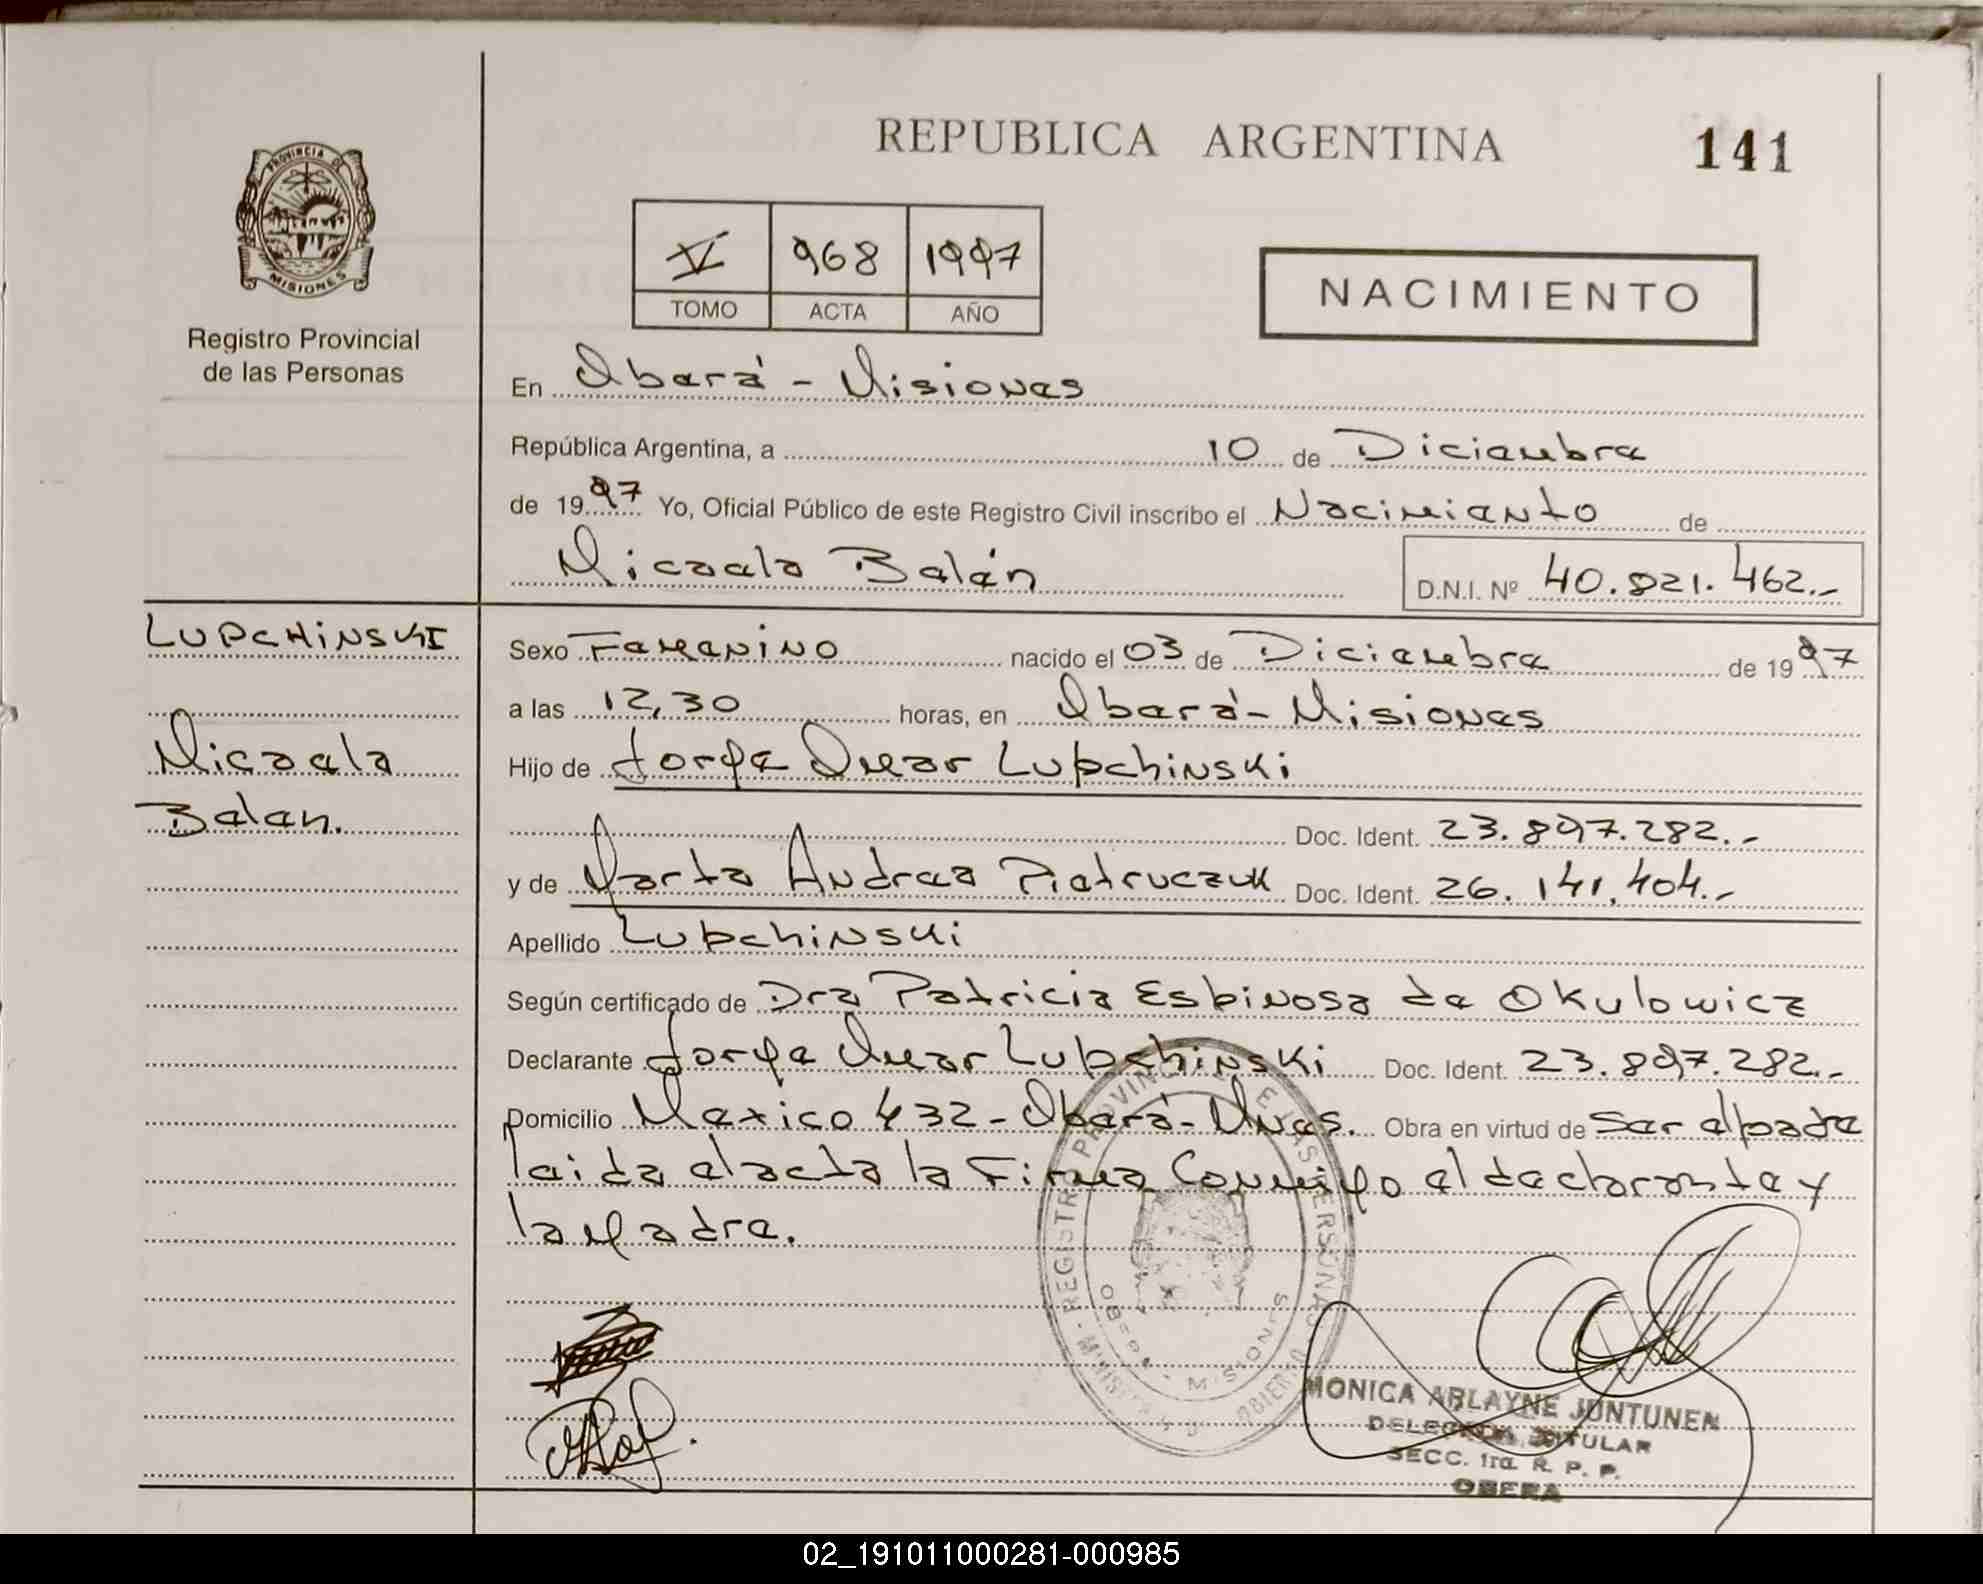 REPUBLICA ARGENTINA
141
PROVINCIA DE
MISIONES
Registro Provincial
de las Personas
V 968 1997
TOMO ACTA AÑO
NACIMIENTO
En Oberá - Misiones
República Argentina, a 10 de Diciembre
de 1997 Yo, Oficial Público de este Registro Civil inscribo el Nacimiento de
Micaela Belén
D.N.I. Nº 40.821.462.-
LUPCHINSKI
Micaela
Belen.
Sexo Femenino nacido el 03 de Diciembre de 1997
a las 12,30 horas, en Oberá - Misiones
Hijo de Jorge Omar Lupchinski
Doc. Ident. 23.897.282.-
y de Marta Andrea Pietruczuk Doc. Ident. 26.141.404.-
Apellido Lupchinski
Según certificado de Dra Patricia Espinosa de Okulowicz
Declarante Jorge Omar Lupchinski Doc. Ident. 23.897.282.-
Domicilio Mexico 432 - Oberá - Mnes. Obra en virtud de Ser el padre
leida el acta la Firma Conmigo el declarante y
la Madre.
REGISTRO PROVINCIAL DE LAS PERSONAS
OBERA - MISIONES
MONICA ARLAYNE JUNTUNEN
DELEGADA TITULAR
SECC. 1ra. R. P. P.
OBERA
02_191011000281-000985